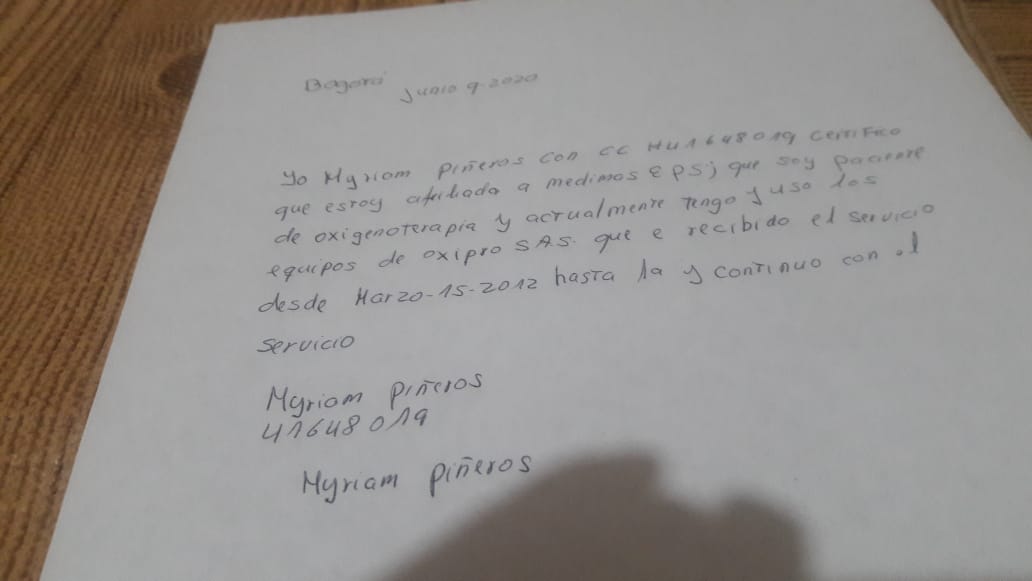 Bogotá junio 9-2020
Yo Myriam Piñeros con cc 41648019 certifico
que estoy afiliada a medimas EPS; que soy paciente
de oxigenoterapia y actualmente tengo y uso los
equipos de oxipro SAS. que e recibido el servicio
desde Marzo-15-2012 hasta la y continuo con el
servicio
Myriam Piñeros
41648019
Myriam piñeros